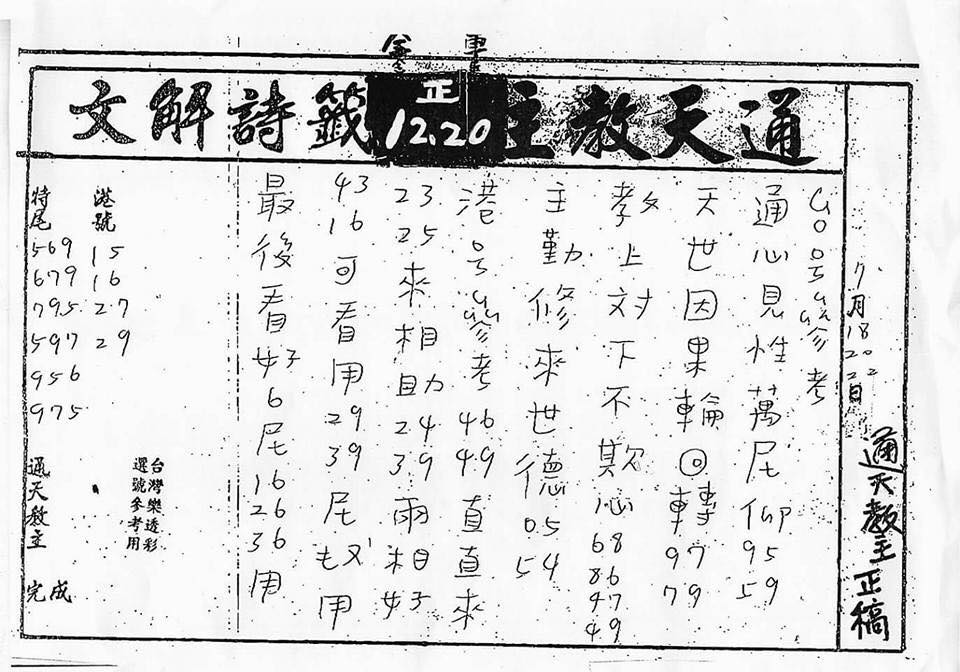 通天教主籤詩解文
正
12.20
7月18 20 22日
通天教主正稿
參考
通心見性萬民仰 95 59
天世因果輪回轉 97 79
教上対下不欺心 68 86 47 49
主勤修來世德 05 54
港号參考 46 49 直直來
23 25 來相助 24 39 兩相好
43 16 可看用 29 39 尾 用
最後看好 6 尾 16 26 36 用
港號
15
16
27
29
特尾
569
679
795
597
956
975
台灣樂透彩
選號參考用
通天教主 完成